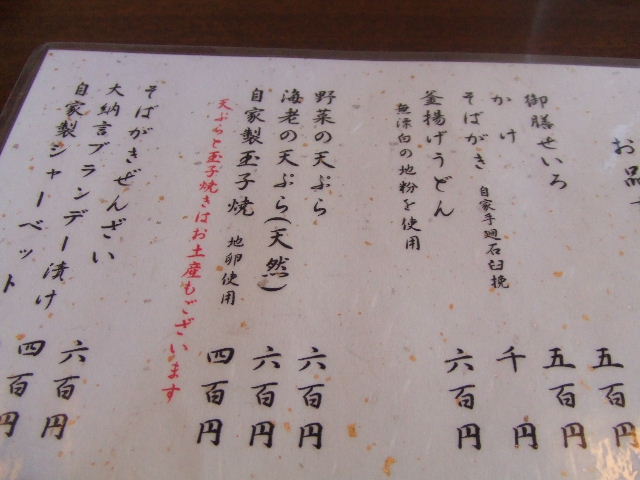 お品
御膳せいろ 五百円
かけ 五百円
そばがき 自家手廻石臼挽 千円
釜揚げうどん 六百円
無漂白の地粉を使用
野菜の天ぷら 六百円
海老の天ぷら(天然) 六百円
自家製玉子焼 地卵使用 四百円
天ぷらと玉子焼きはお土産もございます
そばがきぜんざい 六百円
大納言ブランデー漬け
自家製シャーベット 四百円